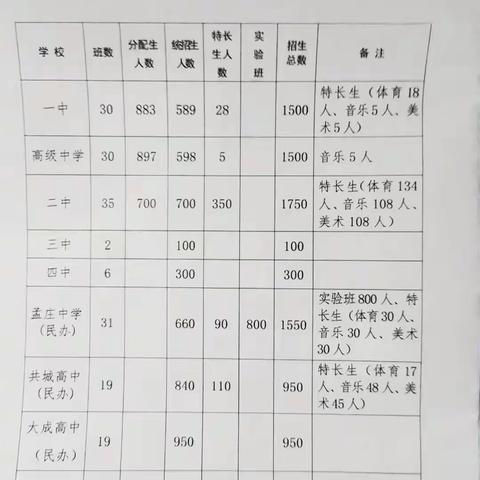 学校 班数 分配生人数 统招生人数 特长生人数 实验班 招生总数 备注
一中 30 883 589 28 1500 特长生（体育18人、音乐5人、美术5人）
高级中学 30 897 598 5 1500 音乐5人
二中 35 700 700 350 1750 特长生（体育134人、音乐108人、美术108人）
三中 2 100 100
四中 6 300 300
孟庄中学（民办） 31 660 90 800 1550 实验班800人、特长生（体育30人、音乐30人、美术30人）
共城高中（民办） 19 840 110 950 特长生（体育17人、音乐48人、美术45人）
大成高中（民办） 19 950 950